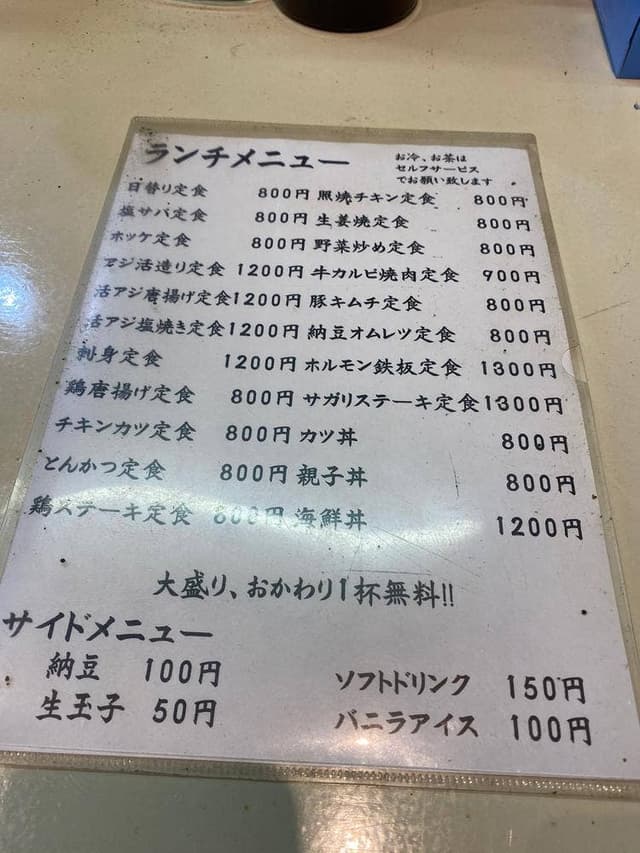 ランチメニュー
お冷、お茶は
セルフサービス
でお願い致します
日替り定食 800円 照焼チキン定食 800円
塩サバ定食 800円 生姜焼定食 800円
ホッケ定食 800円 野菜炒め定食 800円
アジ活造り定食 1200円 牛カルビ焼肉定食 900円
活アジ唐揚げ定食 1200円 豚キムチ定食 800円
活アジ塩焼き定食 1200円 納豆オムレツ定食 800円
刺身定食 1200円 ホルモン鉄板定食 1300円
鶏唐揚げ定食 800円 サガリステーキ定食 1300円
チキンカツ定食 800円 カツ丼 800円
とんかつ定食 800円 親子丼 800円
鶏ステーキ定食 800円 海鮮丼 1200円
大盛り、おかわり1杯無料!!
サイドメニュー
納豆 100円 ソフトドリンク 150円
生玉子 50円 バニラアイス 100円